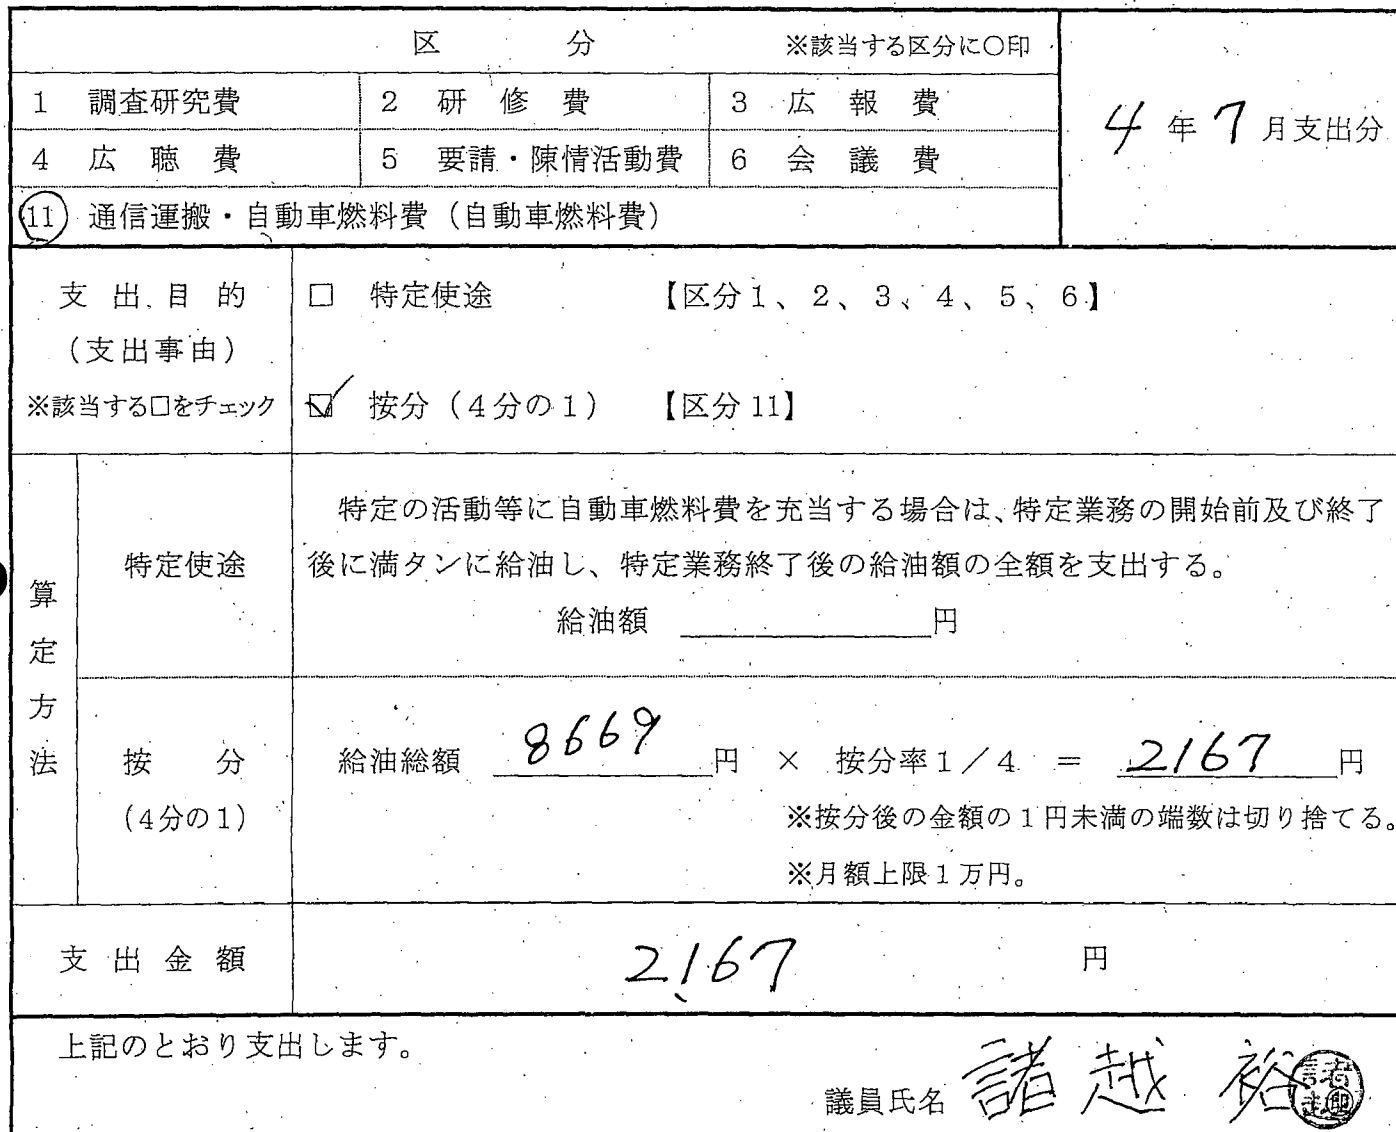 区 分 ※該当する区分に○印
1 調査研究費 2 研修費 3 広報費
4年7月支出分
4 広聴費 5 要請・陳情活動費 6 会議費
11 通信運搬・自動車燃料費（自動車燃料費）
支出目的 □ 特定使途 【区分1、2、3、4、5、6】
（支出事由）
※該当する□をチェック ☑ 按分（4分の1） 【区分11】
算定方法
特定使途
特定の活動等に自動車燃料費を充当する場合は、特定業務の開始前及び終了
後に満タンに給油し、特定業務終了後の給油額の全額を支出する。
給油額 円
按分
（4分の1）
給油総額 8669 円 × 按分率1／4 ＝ 2167 円
※按分後の金額の1円未満の端数は切り捨てる。
※月額上限1万円。
支出金額 2,167 円
上記のとおり支出します。
議員氏名 諸越 裕 諸越 印